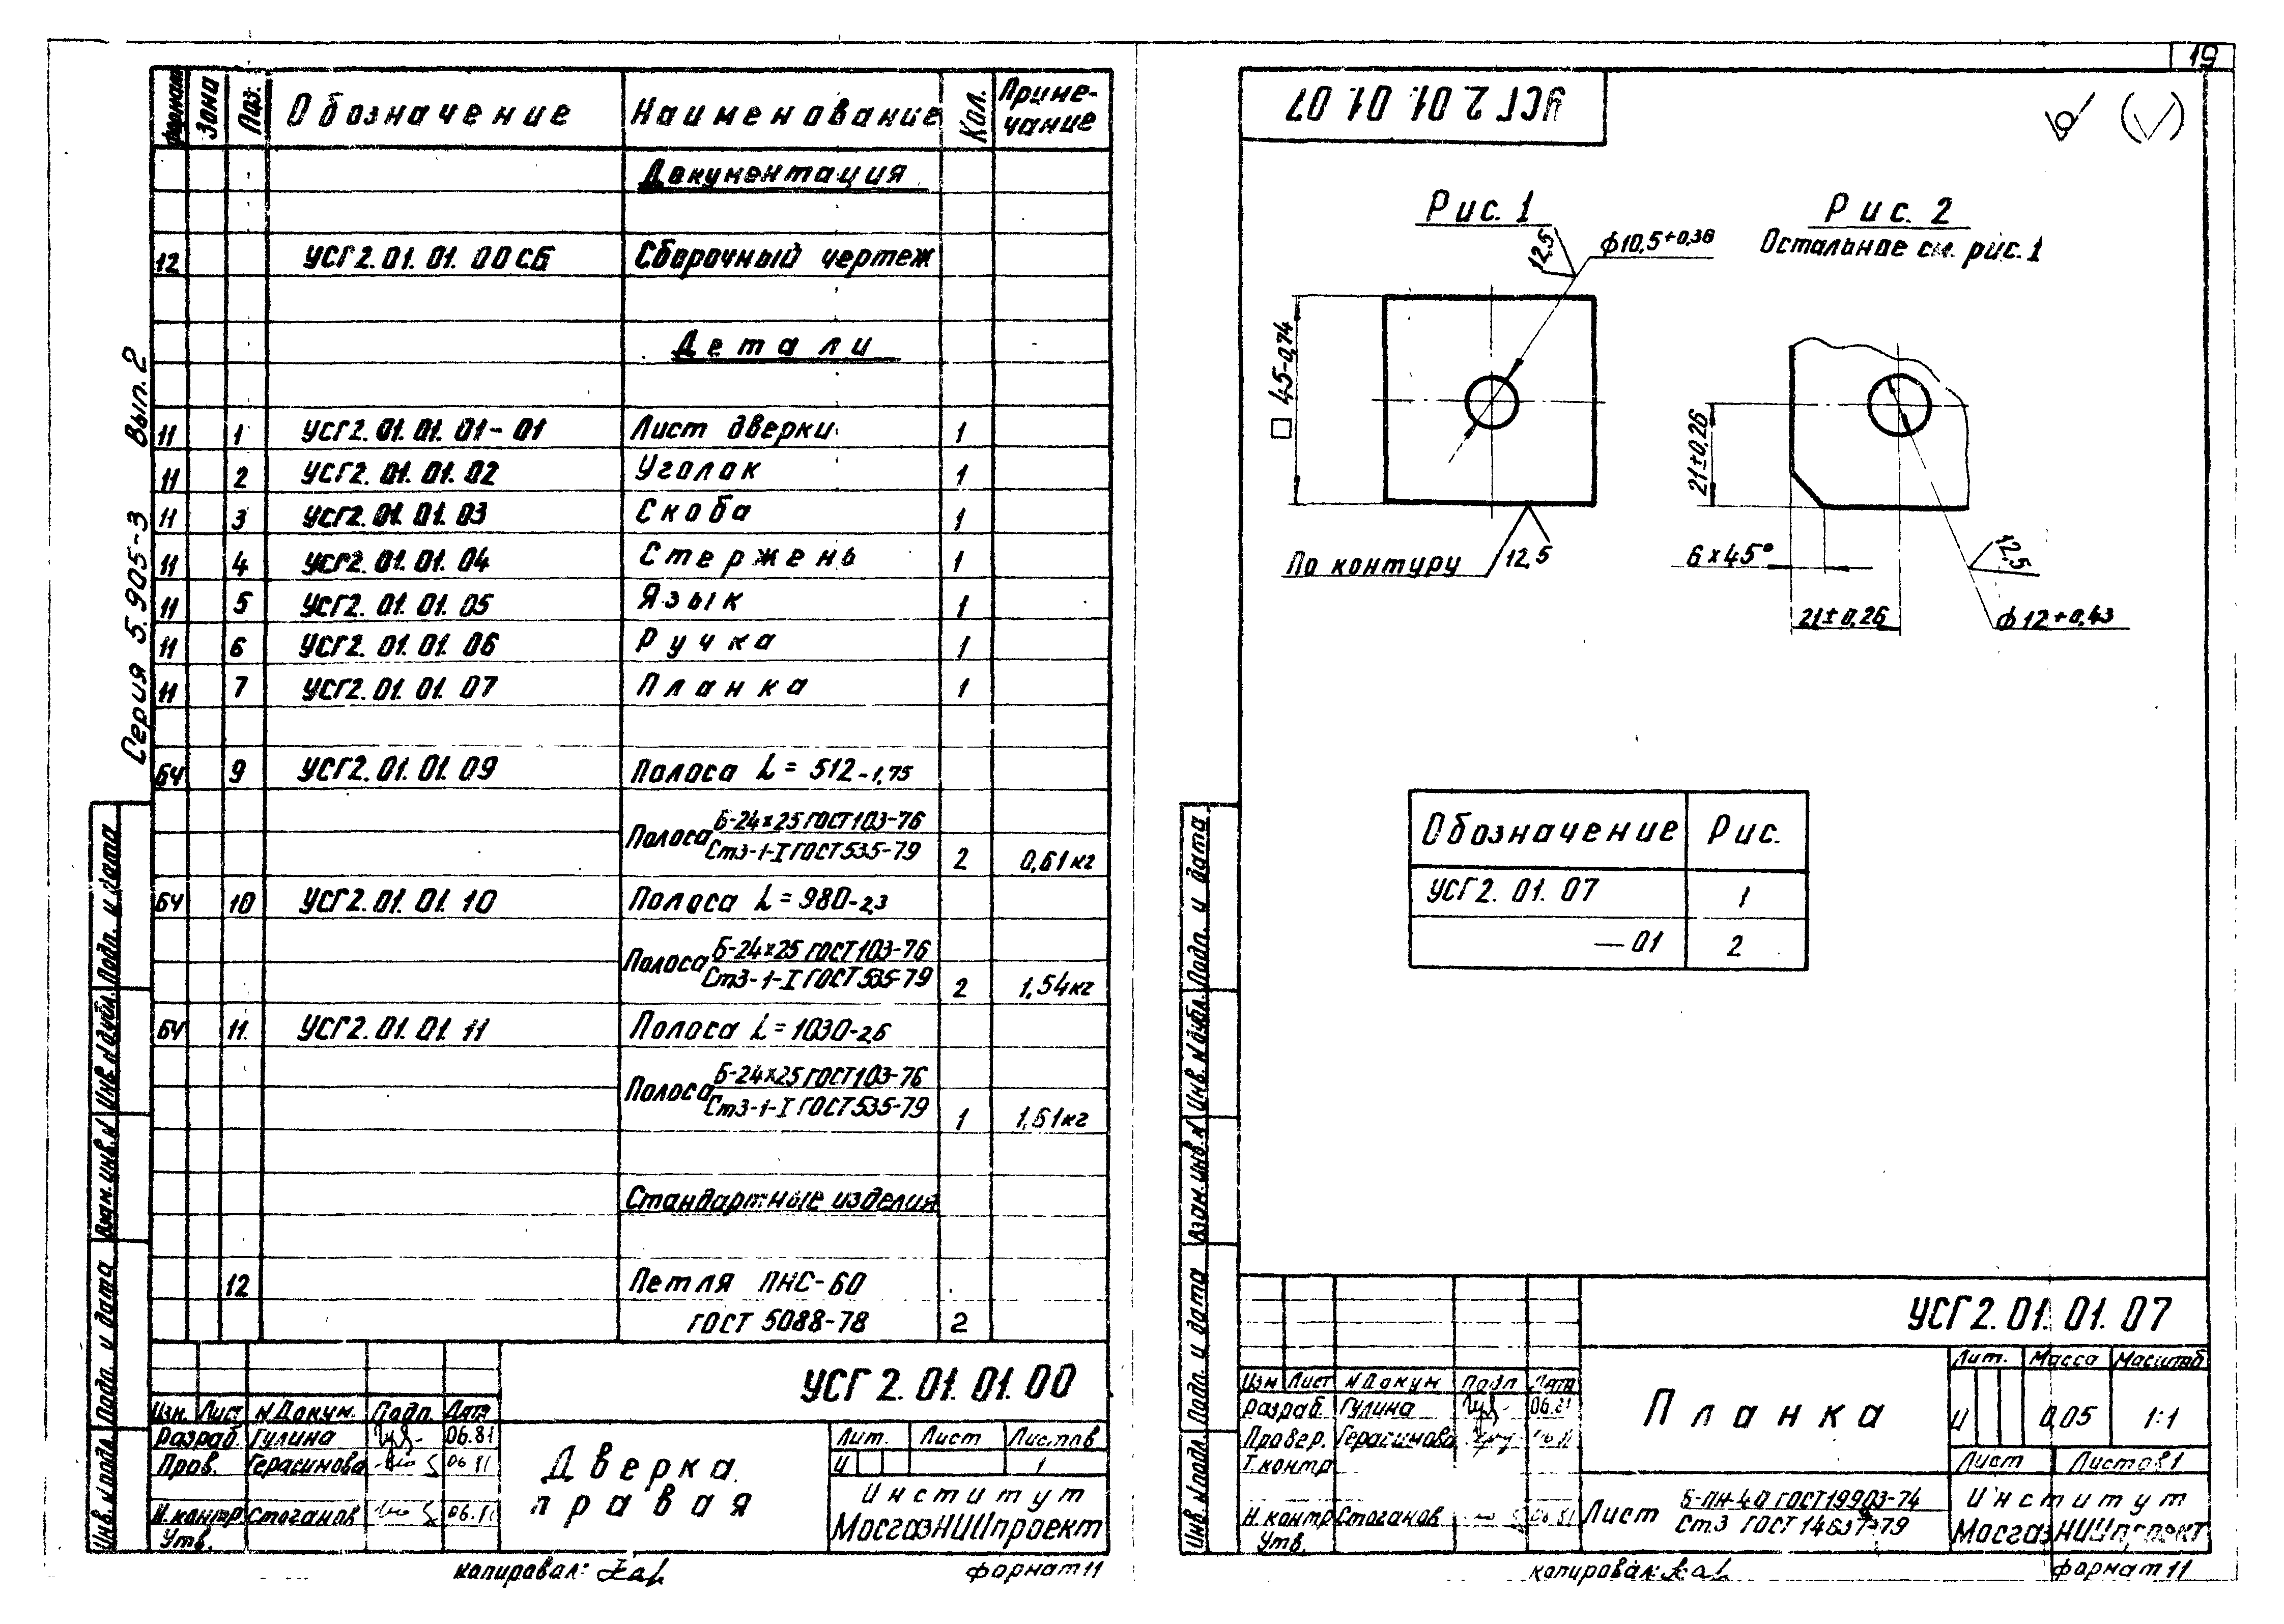 19
Серия 5.905-3 Вып. 2
Формат Зона Поз. Обозначение Наименование Кол. Приме-
чание
Документация
12 УСГ2.01.01.00СБ Сборочный чертеж
Детали
11 1 УСГ2.01.01.01-01 Лист дверки 1
11 2 УСГ2.01.01.02 Уголок 1
11 3 УСГ2.01.01.03 Скоба 1
11 4 УСГ2.01.01.04 Стержень 1
11 5 УСГ2.01.01.05 Язык 1
11 6 УСГ2.01.01.06 Ручка 1
11 7 УСГ2.01.01.07 Планка 1
БЧ 9 УСГ2.01.01.09 Полоса L=512-1,75
Полоса Б-24×25 ГОСТ103-76
Ст3-1-I ГОСТ535-79 2 0,61кг
БЧ 10 УСГ2.01.01.10 Полоса L=980-2,3
Полоса Б-24×25 ГОСТ103-76
Ст3-1-I ГОСТ535-79 2 1,54кг
БЧ 11 УСГ2.01.01.11 Полоса L=1030-2,6
Полоса Б-24×25 ГОСТ103-76
Ст3-1-I ГОСТ535-79 1 1,61кг
Стандартные изделия
12 Петля ПНС-60
ГОСТ 5088-78 2
Инв. № подл. Подп. и дата Взам. инв. № Инв. № дубл. Подп. и дата
УСГ 2.01.01.00
Изм. Лист № Докум. Подп. Дата
Разраб. Гулина 06.81
Пров. Герасимова 06.81
Н.контр. Стоганов 06.81
Утв.
Дверка
правая
Лит. Лист Листов
И 1
Институт
МосгазНИИпроект
копировал: формат 11
УСГ 2.01.01.07
Рис. 1
12,5
ф10,5+0,36
□ 45-0,74
По контуру 12,5
Рис. 2
Остальное см. рис. 1
21±0,26
6×45°
21±0,26
12,5
ф12+0,43
Обозначение Рис.
УСГ2.01.07 1
—01 2
Инв. № подл. Подп. и дата Взам. инв. № Инв. № дубл. Подп. и дата
УСГ2.01.01.07
Изм Лист № Докум Подп Дата
Разраб. Гулина 06.81
Провер. Герасимова 06.81
Т.контр
Н.контр Стоганов 06.81
Утв.
Планка
Лит. Масса Масштаб
И 0,05 1:1
Лист Листов 1
Лист Б-ПН-4,0 ГОСТ19903-74
Ст3 ГОСТ 14637-79
Институт
МосгазНИИпроект
копировал: формат 11